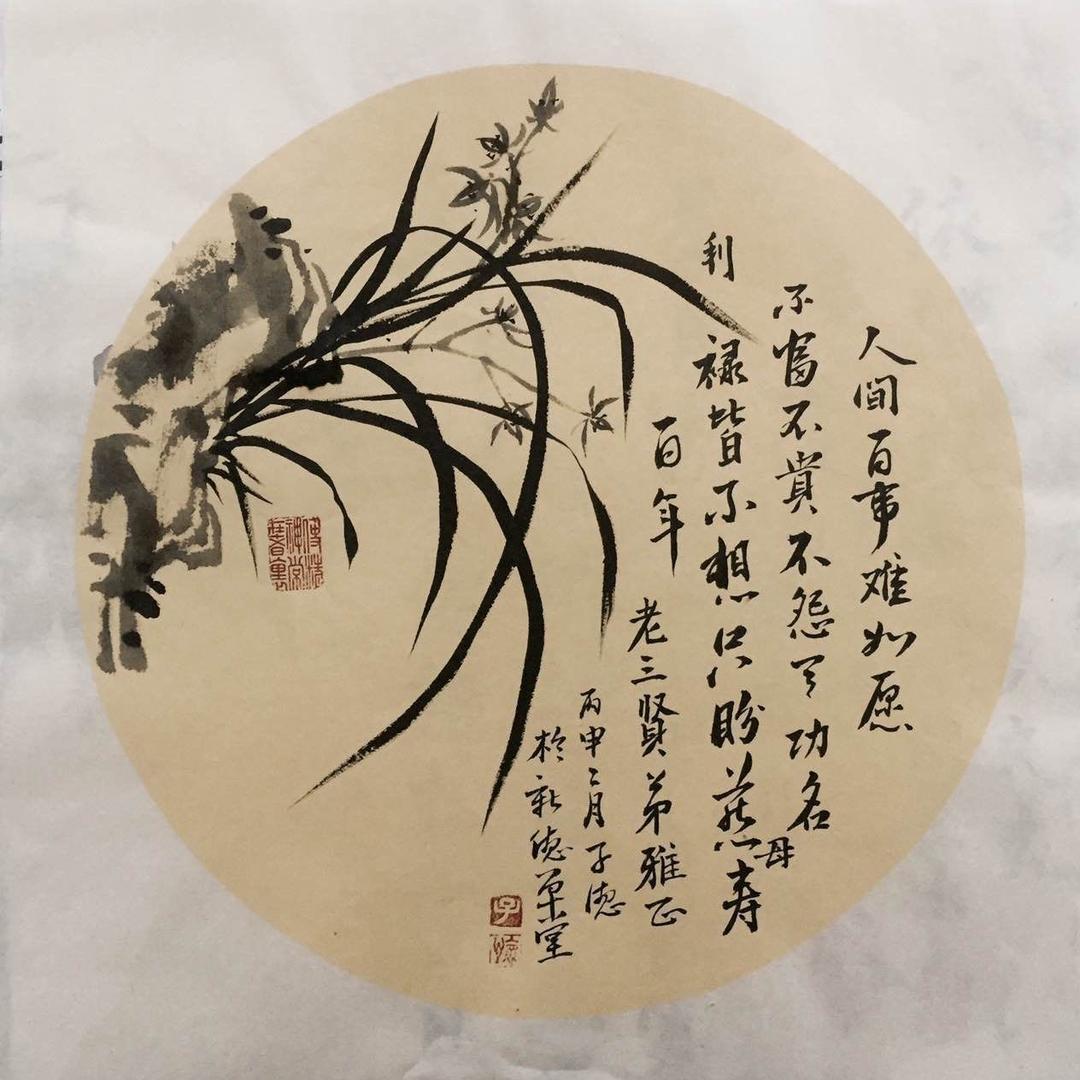 人间百事难如愿
不富不贵不怨天功名
利禄皆不想只盼慈母寿
百年
老三贤弟雅正
丙申二月子德
於新德草堂
子